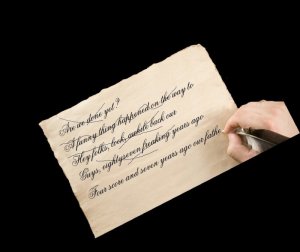 Are we done yet?
A funny thing happened on the way to
Hey folks, look, awhile back our
Guys, eightyseven freaking years ago
Four score and seven years ago our fathe